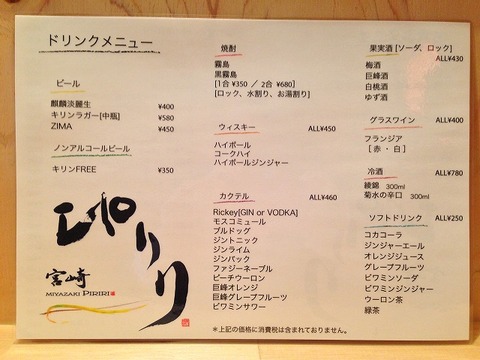 ドリンクメニュー
ビール
麒麟淡麗生 ¥400
キリンラガー[中瓶] ¥580
ZIMA ¥450
ノンアルコールビール
キリンFREE ¥350
ぴりり
宮崎
MIYAZAKI PIRIRI
焼酎
霧島
黒霧島
[1合 ¥350 / 2合 ¥680]
[ロック、水割り、お湯割り]
ウィスキー ALL¥450
ハイボール
コークハイ
ハイボールジンジャー
カクテル ALL¥460
Rickey[GIN or VODKA]
モスコミュール
ブルドッグ
ジントニック
ジンライム
ジンバック
ファジーネーブル
ピーチウーロン
巨峰オレンジ
巨峰グレープフルーツ
ビワミンサワー
果実酒 [ソーダ、ロック]
ALL¥430
梅酒
巨峰酒
白桃酒
ゆず酒
グラスワイン ALL¥400
フランジア
[ 赤 ・ 白 ]
冷酒 ALL¥780
綾錦 300ml
菊水の辛口 300ml
ソフトドリンク ALL¥250
コカコーラ
ジンジャーエール
オレンジジュース
グレープフルーツ
ビワミンソーダ
ビワミンジンジャー
ウーロン茶
緑茶
＊上記の価格に消費税は含まれておりません。